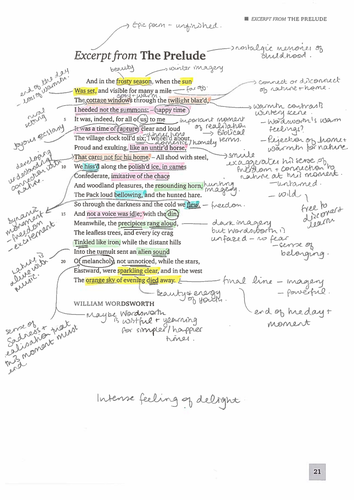 ■ EXCERPT FROM THE PRELUDE
Epic poem - unfinished.
Excerpt from The Prelude
nostalgic memories of childhood.
beauty
winter imagery
And in the frosty season, when the sun
end of the day
Was set, and visible for many a mile
far off
The cottage windows through the twilight blaz'd,
connect or disconnect of nature + home.
I heeded not the summons: – happy time
It was, indeed, for all of us; to me
warmth, contrast wintery scene
- Wordsworth's warm feelings?
It was a time of rapture: clear and loud
important moment of realisation
- rejection of home + warmth for nature.
joyous ecstasy
The village clock toll'd six; I wheel'd about,
Proud and exulting, like an untir'd horse,
That cares not for his home. – All shod with steel,
simile
exaggerates his sense of freedom + connection to nature at this moment.
We hiss'd along the polish'd ice, in games
Confederate, imitative of the chace
- untamed.
- wild
And woodland pleasures, the resounding horn,
hunting imagery
The Pack loud bellowing, and the hunted hare.
So through the darkness and the cold we flew,
freedom.
free to discover + learn
And not a voice was idle; with the din,
Meanwhile, the precipices rang aloud,
dark imagery but Wordsworth is unfazed - no fear
The leafless trees, and every icy crag
- sense of belonging.
Tinkled like iron; while the distant hills
Into the tumult sent an alien sound
Of melancholy, not unnoticed, while the stars,
Eastward, were sparkling clear, and in the west
The orange sky of evening died away.
final line - imagery
- powerful.
Beauty + energy of youth.
end of the day + moment
WILLIAM WORDSWORTH
Maybe Wordsworth is wistful + yearning for simpler/happier times.
sense of sadness + realisation that this moment must end
Intense feeling of delight
21